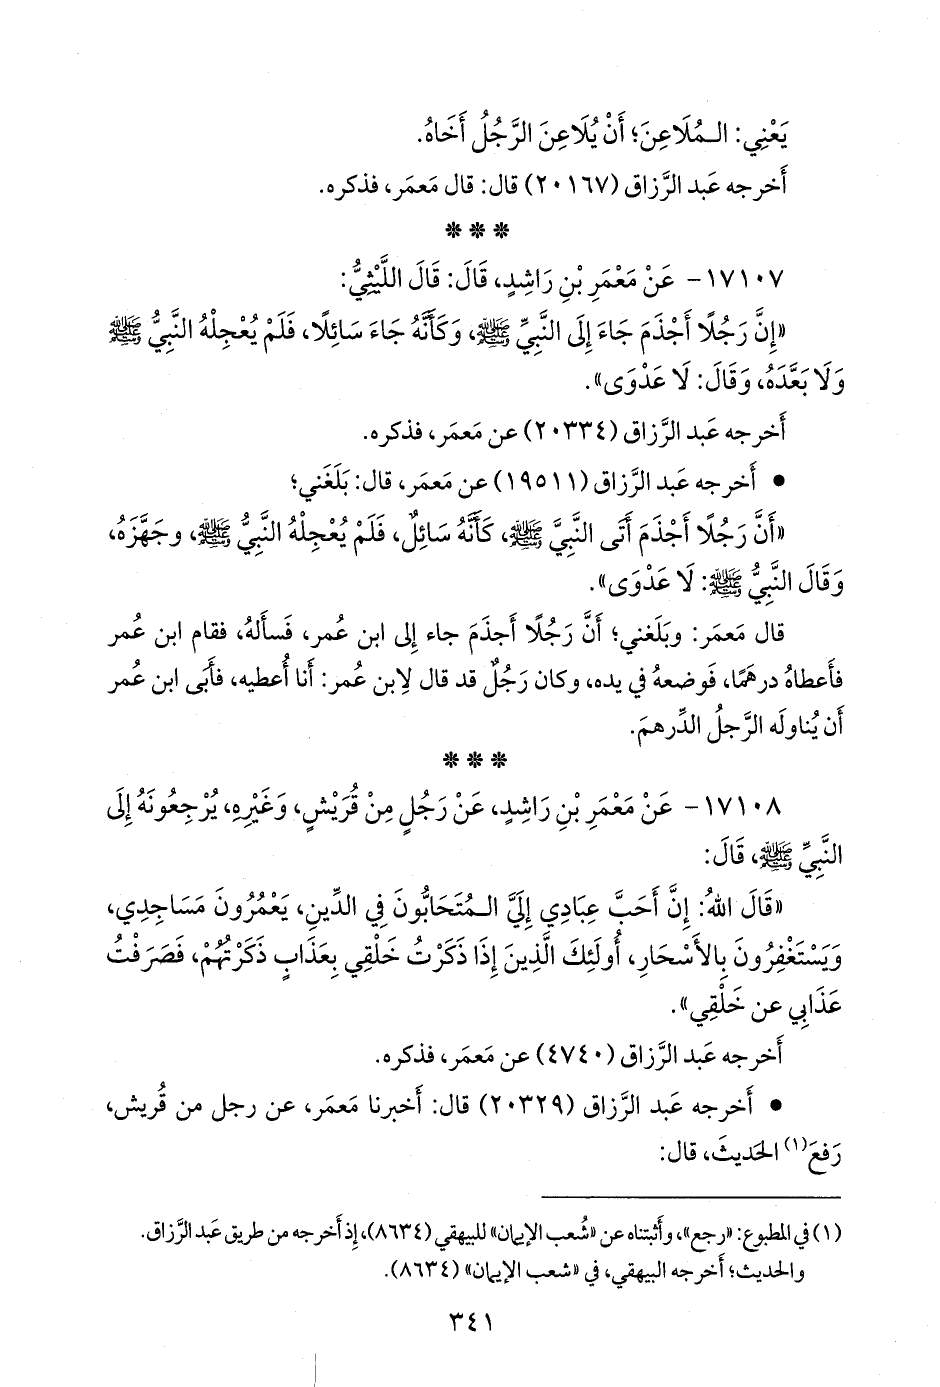 يَعْنِي: الـمُلَاعِنَ؛ أَنْ يُلَاعِنَ الرَّجُلُ أَخَاهُ.
أَخرجه عَبد الرَّزاق (٢٠١٦٧) قال: قال مَعمَر، فذكره.
* * *
١٧١٠٧- عَنْ مَعْمَرِ بْنِ رَاشِدٍ، قَالَ: قَالَ اللَّيْثِيُّ:
«إِنَّ رَجُلًا أَجْذَمَ جَاءَ إِلَى النَّبِيِّ ﷺ، وَكَأَنَّهُ جَاءَ سَائِلًا، فَلَمْ يُعْجِلْهُ النَّبِيُّ ﷺ
وَلَا بَعَّدَهُ، وَقَالَ: لَا عَدْوَى».
أَخرجه عَبد الرَّزاق (٢٠٣٣٤) عن مَعمَر، فذكره.
• أَخرجه عَبد الرَّزاق (١٩٥١١) عن مَعمَر، قال: بَلَغَني؛
«أَنَّ رَجُلًا أَجْذَمَ أَتَى النَّبِيَّ ﷺ، كَأَنَّهُ سَائِلٌ، فَلَمْ يُعْجِلْهُ النَّبِيُّ ﷺ، وجَهَّزَهُ،
وَقَالَ النَّبِيُّ ﷺ: لَا عَدْوَى».
قال مَعمَر: وبَلَغني؛ أَنَّ رَجُلًا أَجذَمَ جاء إِلى ابن عُمر، فَسأَلهُ، فقام ابن عُمر
فأَعطاهُ درهَمًا، فَوضعهُ في يده، وكان رَجُلٌ قد قال لِابن عُمر: أَنا أُعطيه، فأَبَى ابن عُمر
أَن يُناولَه الرَّجلُ الدِّرهمَ.
* * *
١٧١٠٨- عَنْ مَعْمَرِ بْنِ رَاشِدٍ، عَنْ رَجُلٍ مِنْ قُرَيْشٍ، وَغَيْرِهِ، يُرْجِعُونَهُ إِلَى
النَّبِيِّ ﷺ، قَالَ:
«قَالَ اللهُ: إِنَّ أَحَبَّ عِبَادِي إِلَيَّ الـمُتَحَابُّونَ فِي الدِّينِ، يَعْمُرُونَ مَسَاجِدِي،
وَيَسْتَغْفِرُونَ بِالأَسْحَارِ، أُولَئِكَ الَّذِينَ إِذَا ذَكَرْتُ خَلْقِي بِعَذَابٍ ذَكَرْتُهُمْ، فَصَرَفْتُ
عَذَابِي عن خَلْقِي».
أَخرجه عَبد الرَّزاق (٤٧٤٠) عن مَعمَر، فذكره.
• أَخرجه عَبد الرَّزاق (٢٠٣٢٩) قال: أَخبرنا مَعمَر، عن رجل من قُريش،
رَفعَ(١) الحَديثَ، قال:
(١) في المطبوع: «رجع»، وأَثبتناه عن «شُعب الإيمان» للبيهقي (٨٦٣٤)، إِذ أَخرجه من طريق عَبد الرَّزاق.
والحديث؛ أَخرجه البيهقي، في «شعب الإيمان» (٨٦٣٤).
٣٤١